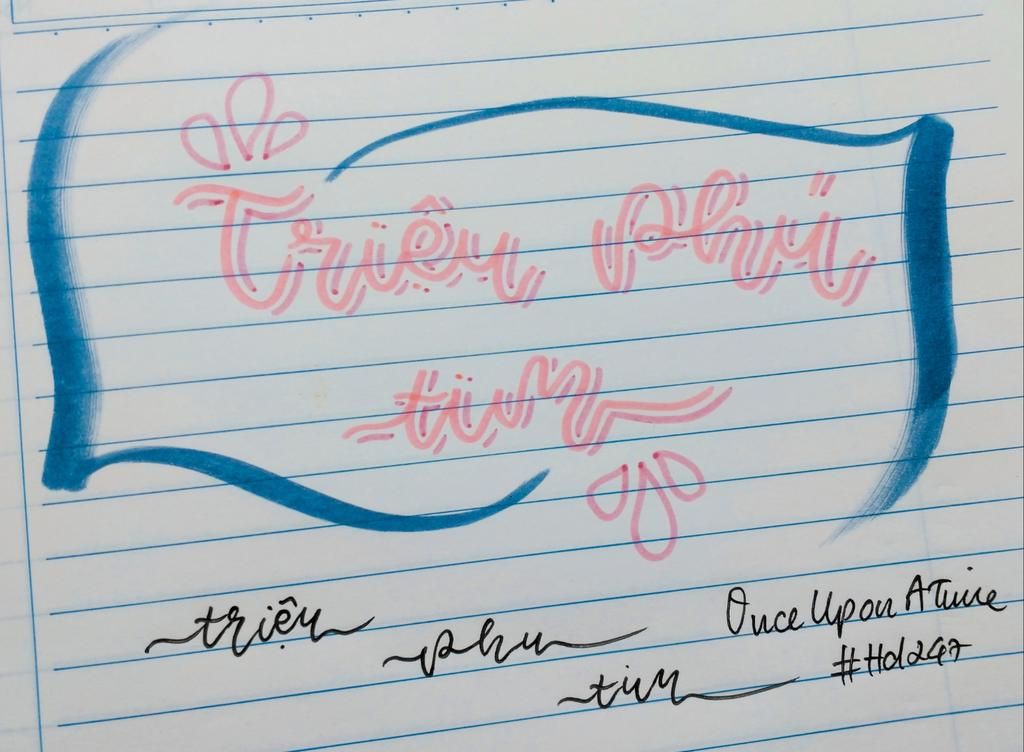 Triệu phú
tim
triệu
phu
tim
Once Upon A Time
#Hd247